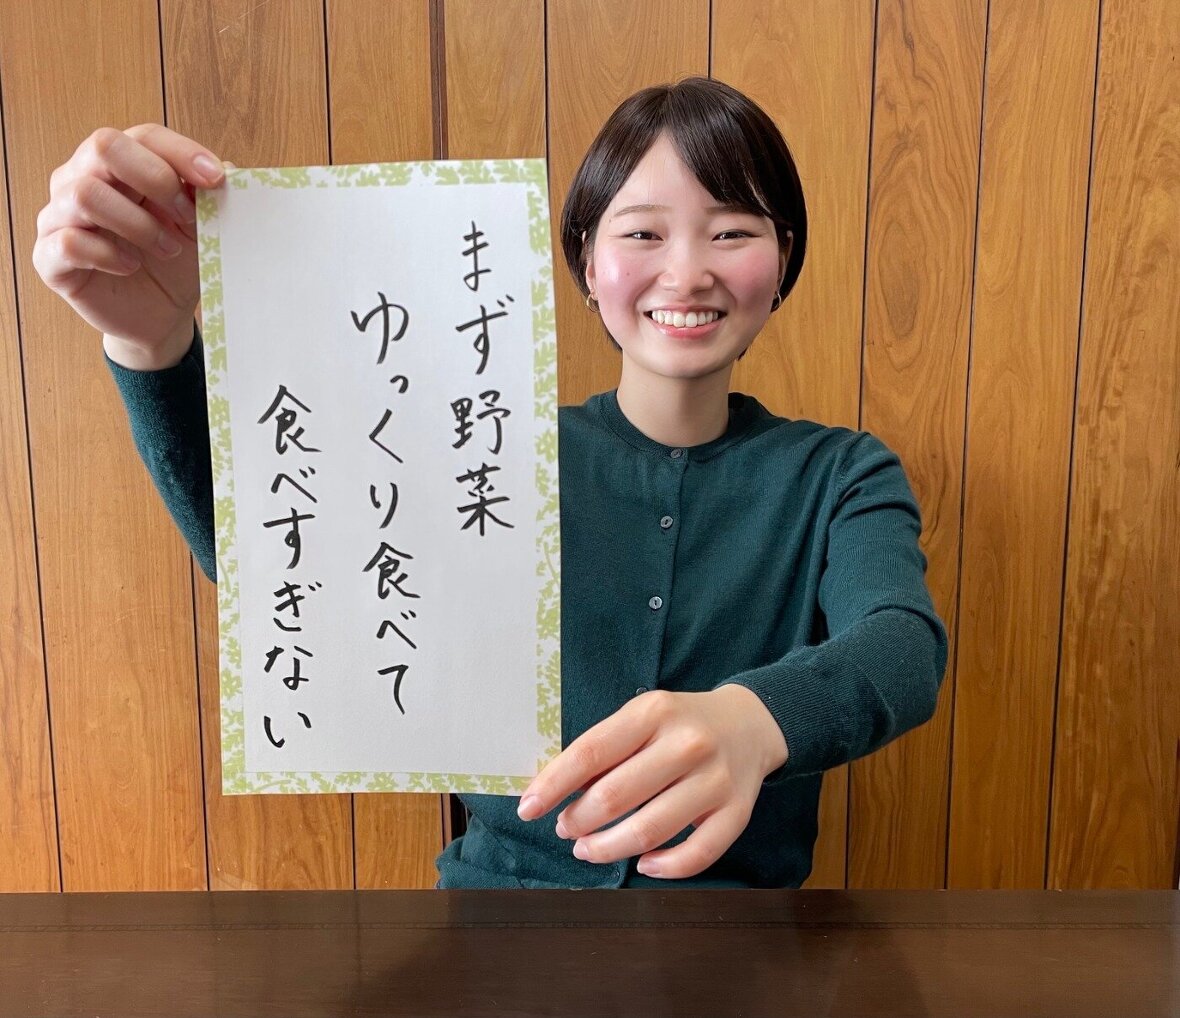 まず野菜
ゆっくり食べて
食べすぎない